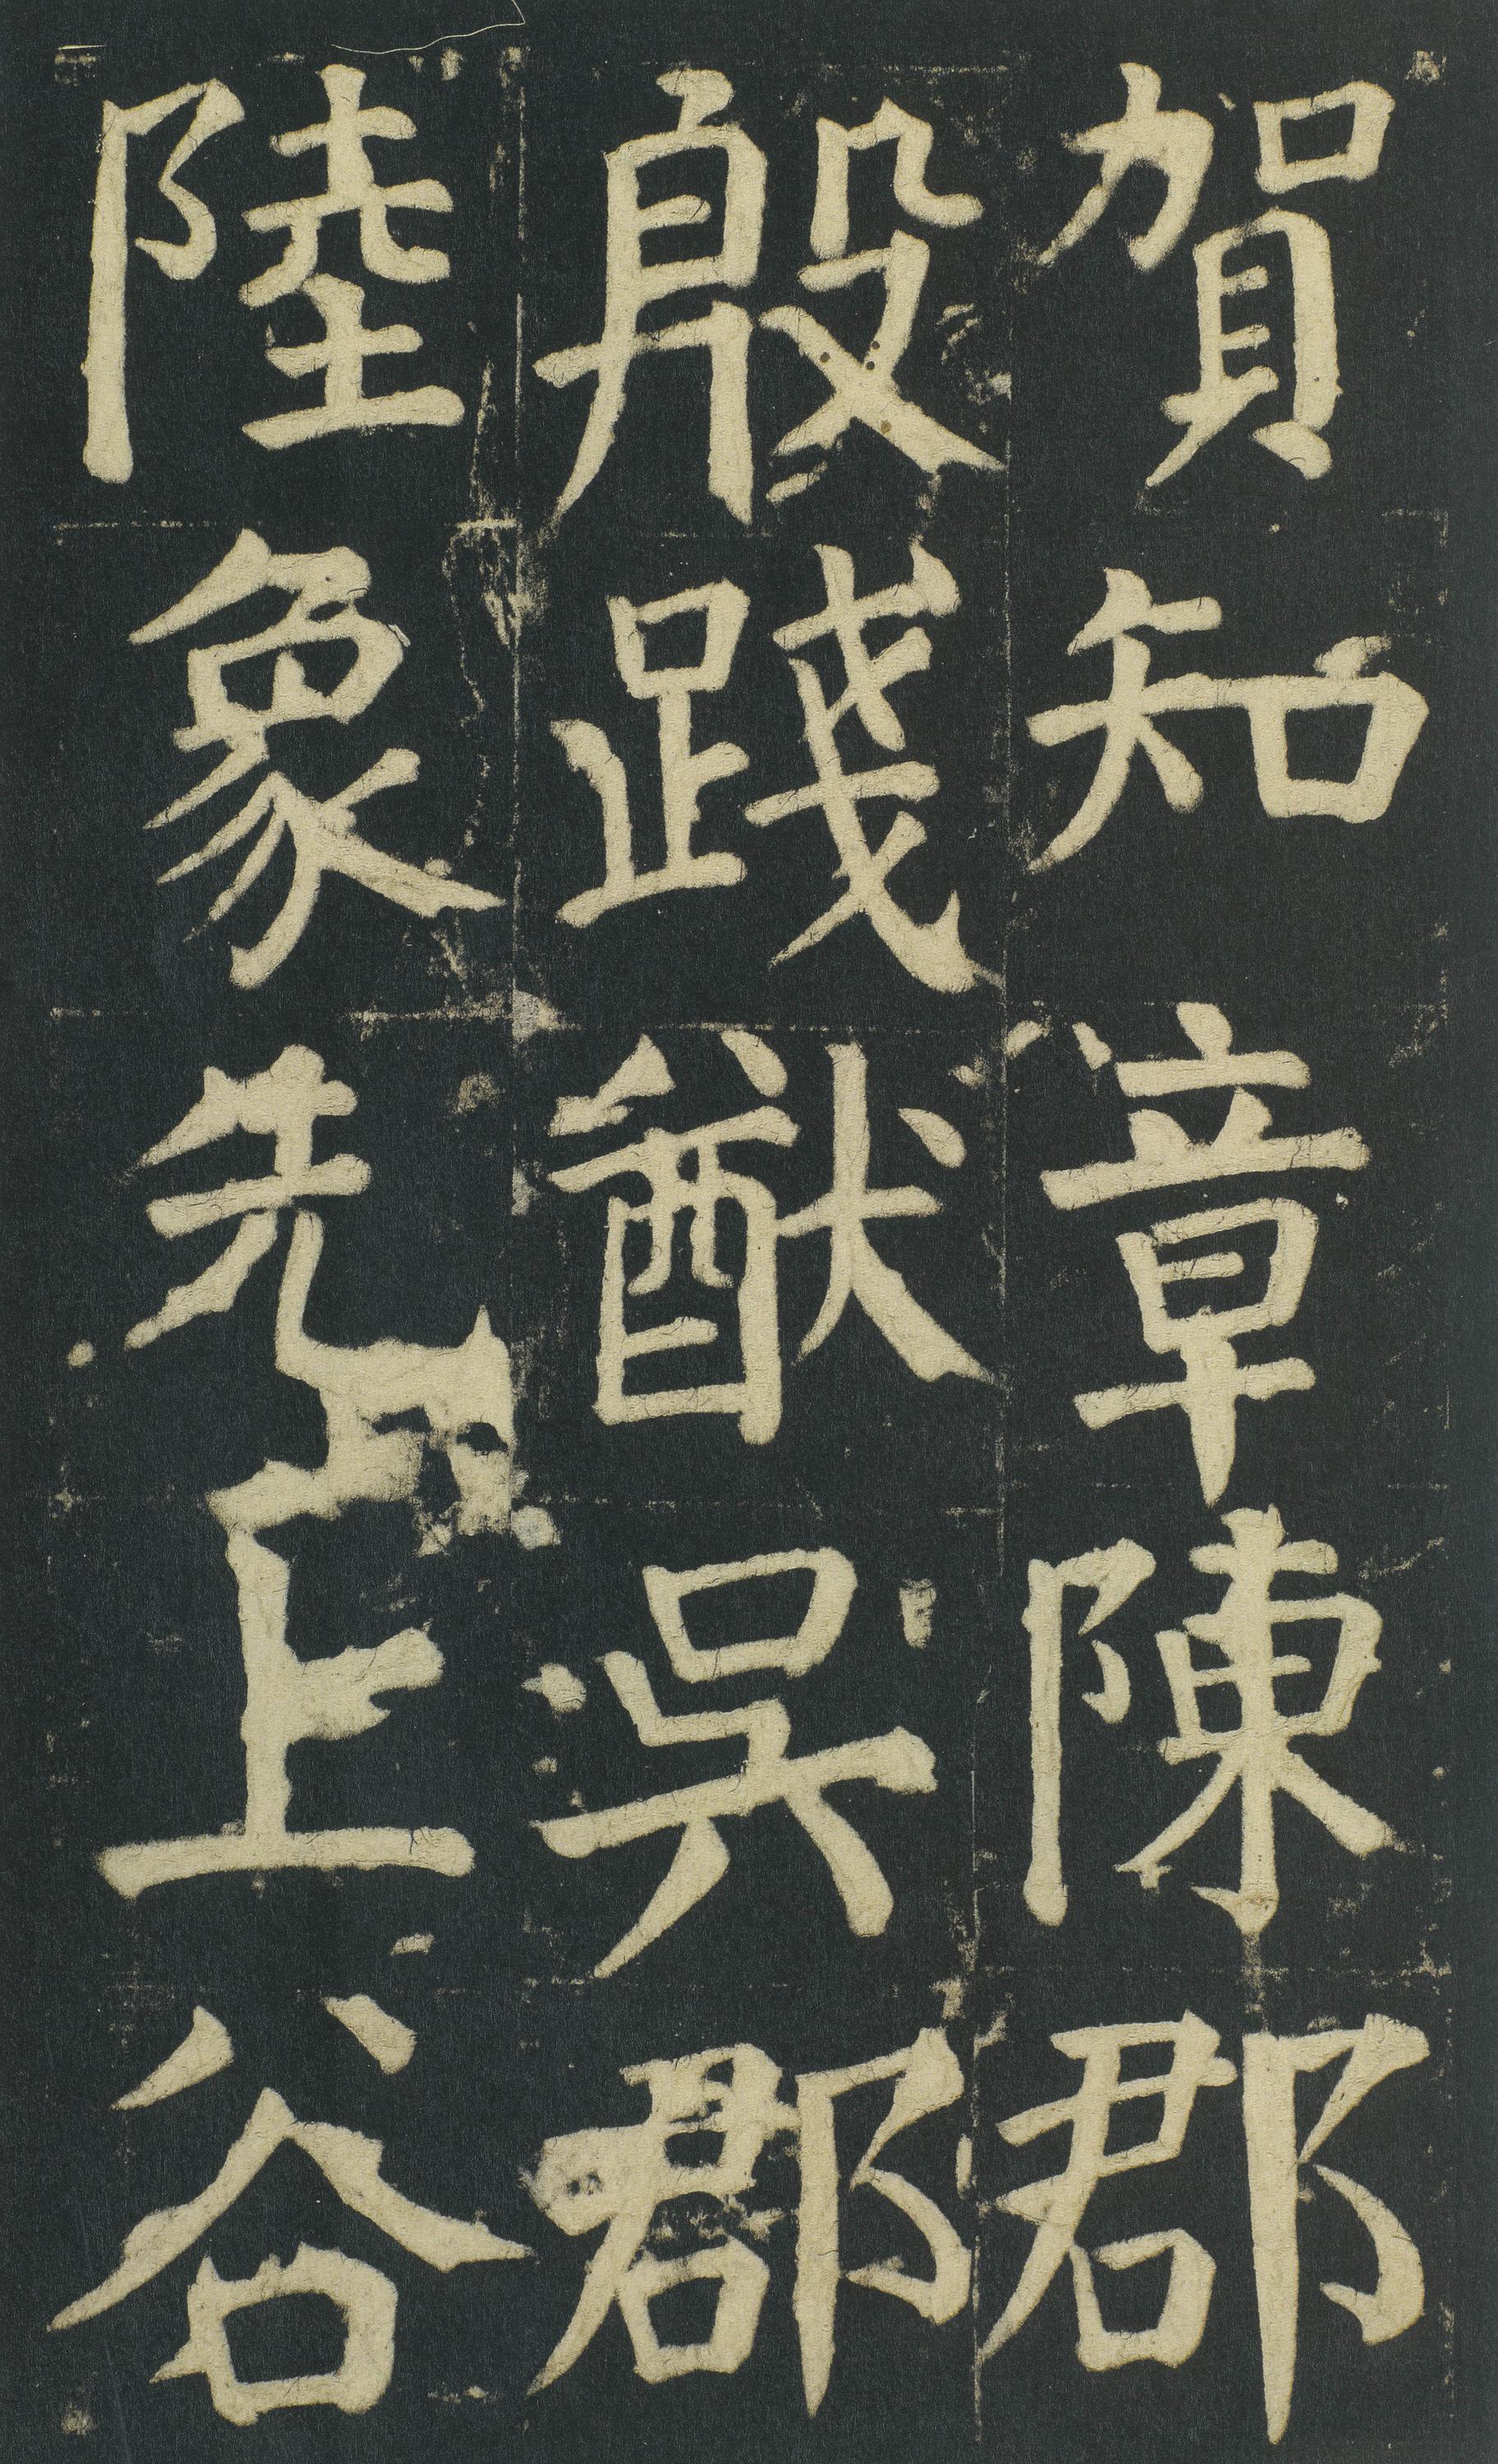 賀知章陳郡
殷踐猷吳郡
陸象先上谷